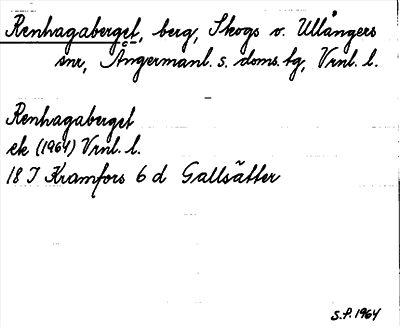 Renhagaberget, berg, Skogs o. Ullångers
snr, Ångermanl. s. doms. tg, Vrnl. l.
Renhagaberget
ek (1964) Vrnl. l.
18 J Kramfors 6 d Gallsätter
S.P. 1964